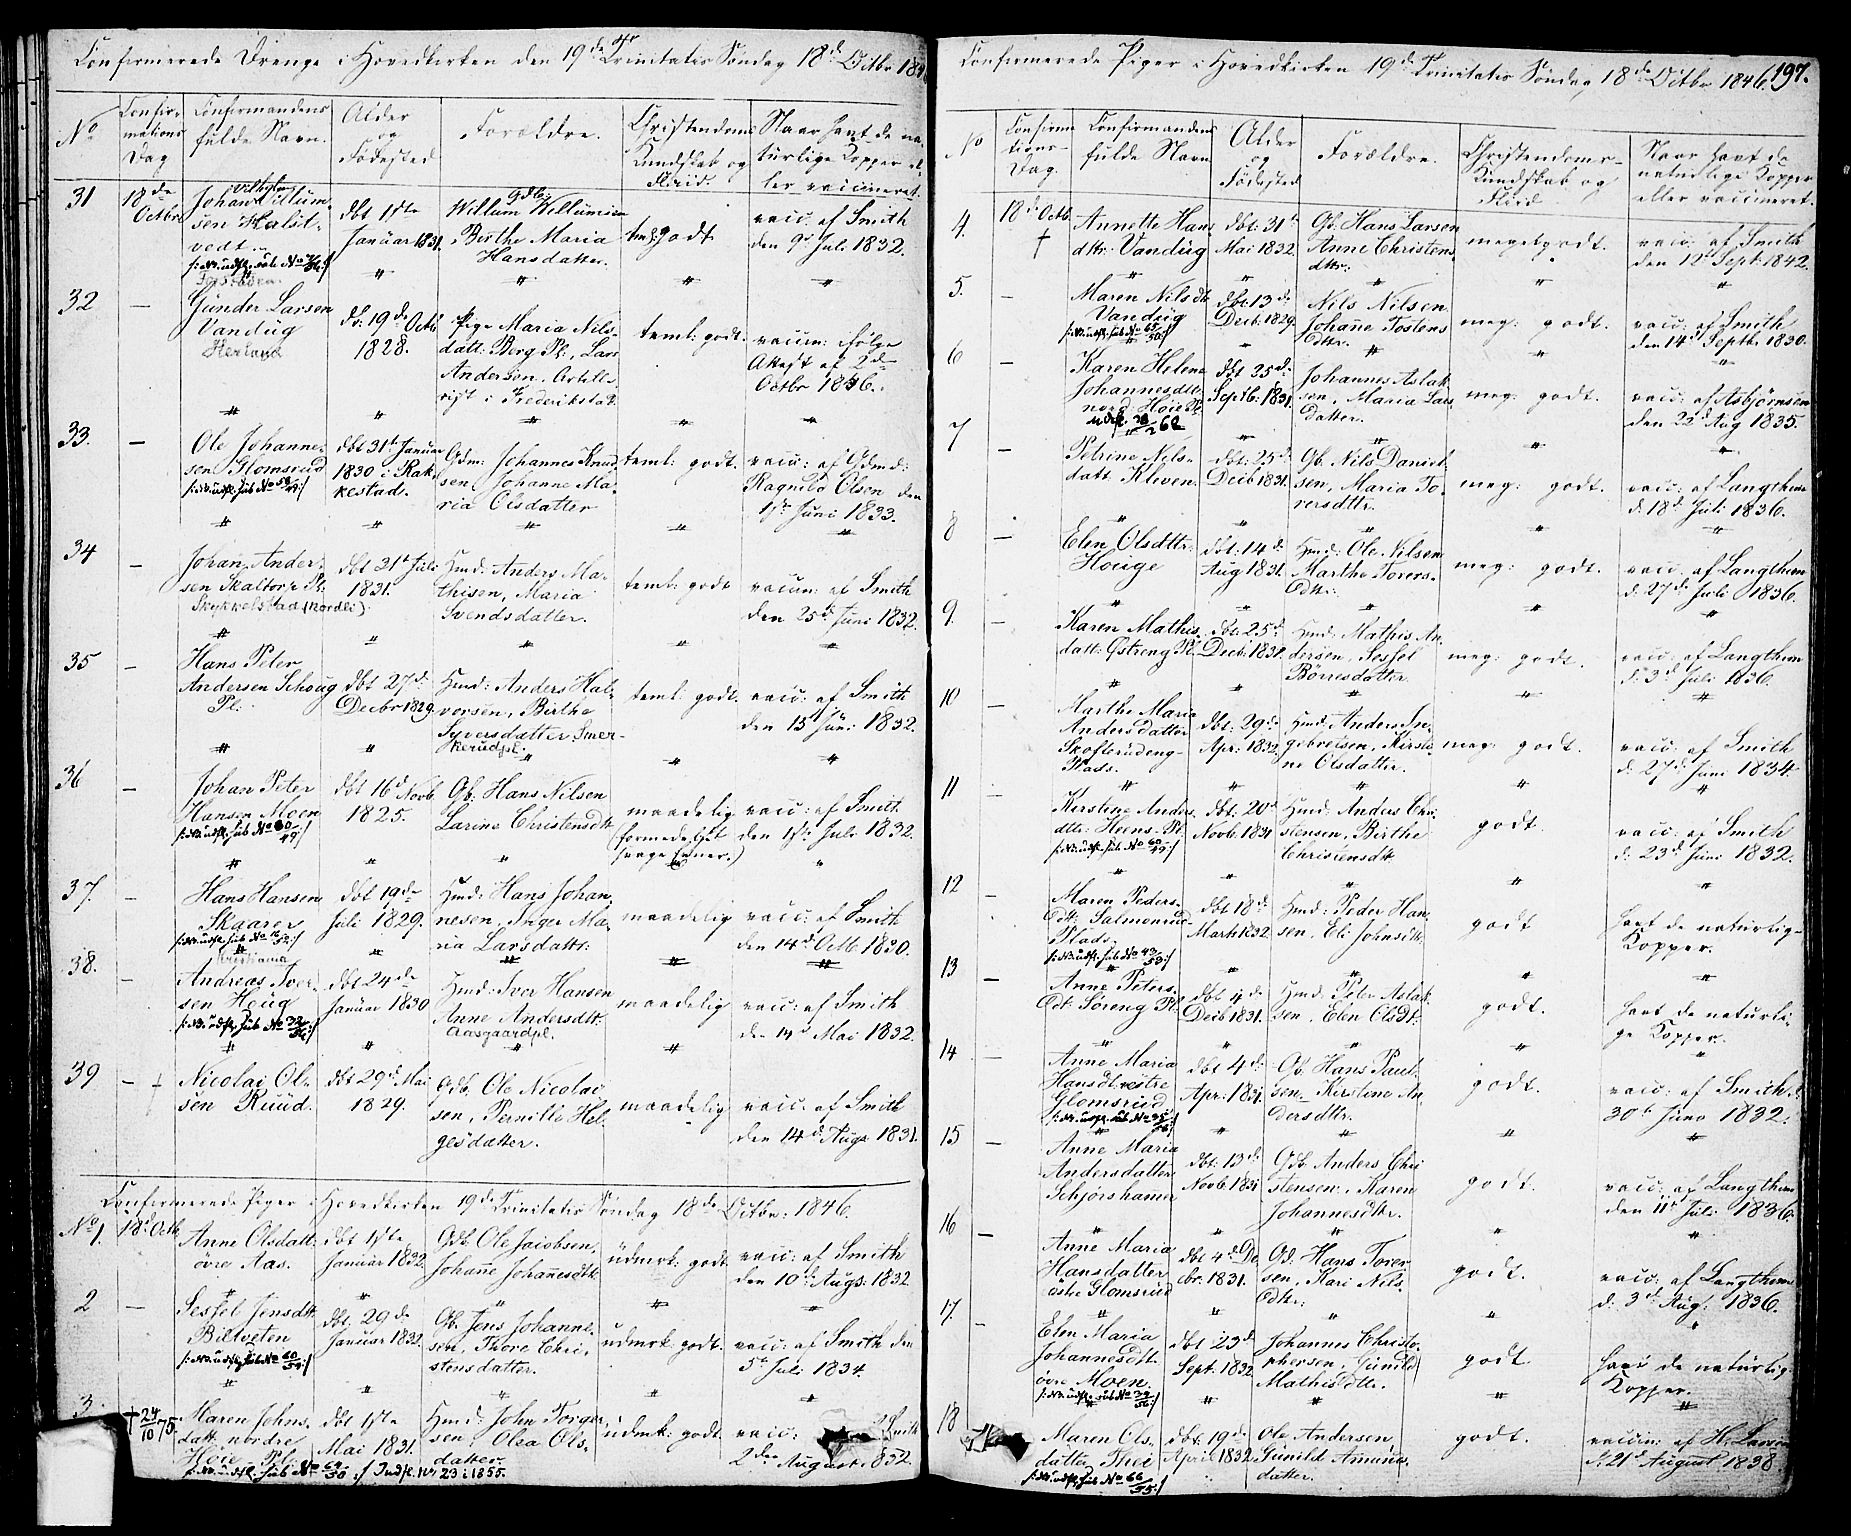 Confirmerede Drenge i Hovedkirken den 19de Sr Trinitatis Søndag 18de Octbr 184
No
Confir-
mations
Dag
Confirmandens
fulde Navn.
Alder
og
Fødested
Forældre.
Christendoms
Kundskab og
Fliid.
Naar havt de na-
turlige Kopper el-
ler vaccineret.
31
18de
Octbr
Johan Vilhelm Villum-
sen Kalst-
vedt
dbt 1ste
Januar 1831.
Gdb:
Willum Willumsen
Birthe Maria
Hansdatter.
teml: godt
vacc: af Smith
den 9de Juli 1832.
32
—
Gunder Larsen
Vandug
Herland
db: 19de Octb:
1828.
Pige Maria Nils-
datt: Berg Pl., Lars
Andersen, Artille-
rist i Frederikstad.
teml: godt.
vaccin: ifølge
Attest af 2de
Octbr 1846.
33.
—
Ole Johanne-
sen Glomsrud
dbt 31te Januar
1830 i Rak-
kestad.
Gdm: Johannes Knud-
sen, Johanne Ma-
ria Olsdatter
teml: godt.
vacc: af Gdmd:
Ragnild Olsen den
1ste Juni 1833.
34
—
Johan Ander-
sen Skaltorp Pl:
Skykkelstad (Nordli)
dbt 21de Juli
1831.
Hmd: Anders Ma-
thisen, Maria
Svendsdatter.
teml: godt
vaccin: af Smith
den 25de Juni 1832.
35
—
Hans Peter
Andersen Schoug
Pl:
dbt 27de
Decbr 1829.
Hmd: Anders Hal-
vorsen, Birthe
Syversdatter. Smer-
kerudpl.
teml: godt.
vacc: af Smith
den 15de Juni 1832.
36
—
Johan Peter
Hansen Moen
/: Nr. udst. sub No 60/49 :/
dbt 16de Novb
1825.
Gb: Hans Nilsen
Larine Christensdtt
maadelig
(formedelst
svage Evner.)
vacc: af Smith
den 1ste Juli 1832.
37.
—
Hans Hansen
Skaarer
dbt 19de
Juli 1829.
Hmd: Hans Johan-
nesen, Inger Ma-
ria Larsdatt:
maadelig
vacc: af Smith
den 14de Octb 1830.
38.
—
Kristiania
Andreas Iver-
sen Houg
/: Nr. udst. sub No 32/54 :/
dbt 24de
Januar 1830
Hmd: Iver Hansen
Anne Andersdtt:
Aasgaardpl.
maadelig
vacc: af Smith
den Mai 1832.
39
— †
Nicolai Ol-
sen Ruud.
dbt 29de Mai
1829.
Gdb. Ole Nicolai-
sen, Pernille Hel-
gesdatter.
maadelig
vacc: af Smith
den 14de Augs 1831.
Confirmerede Piger i Hovedkirken 19de Trinitatis Søndag 18de Octbr. 1846.
No 1.
18de Octb
Anne Olsdatt:
øvre Aas.
dbt 1ste
Januar 1832.
Gdb. Ole Jacobsen,
Johanne Johannesdtt
udmrk: godt
vacc: af Smith
den 10de Augs: 1832
2
—
Sessel Jensdtt.
Biltveten
dbt. 29de
Januar 1832.
Gb. Jens Johanne-
sen, Thore Chri-
stensdatter.
udmrk godt.
vacc: af Smith den
5te Juli 1834.
3.
† 24/10 75.
Maren Johns-
datt. nordre
Høie Pl:
/: Nr. udst. sub No 64/50 :/ Indfl. nr 23 i 1855.
dbt 1ste
Mai 1831.
Hmd: John Torger-
sen, Olea Ols-
datter.
udmk: godt.
vacc: Smith
2den August 1832.
Confirmerede Piger i Hovedkirken 19de Trinitatis Søndag 18de Octbr 1846.
197.
No
Confirma
tions-
Dag.
Confirmandens
fulde Navn
Alder
og
Fødested
Forældre.
Christendoms-
Kundskab og
Fliid
Naar havt de
naturlige Kopper
eller vaccineret.
4.
18de Octb.
†
Annette Hans
dtr: Vandug
dbt: 31te
Mai 1832.
Gb. Hans Larsen
Anne Christens
dtr:
meget godt.
vacc: af Smith
den 12te Septb: 1842.
5.
—
Maren Nilsdt
Vandug
/: Nr. udst. sub No 65/50 :/
dbt: 13de
Decb: 1829.
Nils Nilsen
Johanne Tostens
dtr:
meg: godt.
vacc: af Smith
den 14de Septb. 1830.
6
—
Karen Helene
Johannesdtr
nord Høie Pl.
udfl. 38/262
dbt 25de
Septb: 1831.
Johannes Aslak-
sen, Maria Lars
datter.
meg: godt.
vacc: af Asbjørnsen
den 22de Aug 1835.
7
—
Petrine Nils-
datt Kleven.
dbt: 25de
Decb 1831.
Gb. Nils Daniel-
sen, Maria To-
rersdtr.
meg: godt.
vacc: af Langthun
d: 18de Juli 1836.
8
—
Elen Olsdttr:
Houge
dbt: 14de
Aug 1831.
Hmd: Ole Nilsen
Marthe Torers-
dtr:
meg: godt.
vacc: af Langthun
d: 27de Juli 1836.
9.
—
Karen Mathis-
datt: Østreng Pl.
dbt: 25de
Decb: 1831.
Hmd: Mathis An-
dersen, Sessel
Børresdatter.
meg: godt.
vacc: af Langthun
d: 3de Juli 1836.
10
—
Marthe Maria
Andersdatter
Skofterudeng-
Plads.
dbt: 29de
Apr: 1832.
Hmd: Anders In-
gebretsen, Kirsti-
ne Olsdatter.
meg: godt.
vacc: af Smith
d: 27de Juni 1834.
11
—
Kirstine Anders-
dtr: Heens Pl.
/: Nr. udst. sub No 60/49 :/
dbt: 20de
Novb. 1831
Hmd: Anders Chri-
stensen, Birthe
Christensdtt
godt.
vacc: af Smith
d: 23de Juni 1832.
12
—
Maren Peders-
dtt: Salmonrud-
Plads.
/: Nr. udst. sub No 43/53 :/
dbt 18de
Marts 1832
Hmd: Peder Han-
sen, Eli Johnsdtt.
godt
havt de naturlig-
Kopper.
13
—
Anne Peters-
dtt: Søreng Pl:
dbt 4de
Decb 1831.
Hmd: Peter Aslak-
sen, Elen Olsdt:
godt.
havt de naturli-
ge Kopper.
14
—
Anne Maria
Hansdt. vestre
Glomsrud
dbt 4de
Apr: 1831.
Gb. Hans Paul-
sen. Kirstine An-
dersdtr.
godt.
vacc: af Smith d:
30te Juno 1832.
15
—
Anne Maria
Andersdatter
Schjørshamer
dbt: 13de
Novb. 1831
Gdb. Anders Chri-
stensen, Karen
Johannesdtr.
godt.
vacc: af Langthun
den 11te Juli 1836.
16
—
Anne Maria
Hansdatter
østre Glomsrud
dbt 4de De-
cbr: 1831.
Gd: Hans Torer-
sen, Kari Nils-
dtr:
godt.
vacc: af Langthun
d: 3de Aug. 1836.
17.
—
Elen Maria
Johannesdtt.
øvre Moen.
dbt 23de
Sept. 1832
Johannes Christo-
phersen, Gunild
Mathisdtr.
godt.
havt de naturlig-
Kopper.
18
Maren Ols-
datter Thei
/: Nr. udst. sub No 66/55 :/
dbt: 19de
April 1832
Ole Andersen,
Gunild Amunds-
datter.
godt.
vaccin: af H. Larsen
d: 21de August 1838.